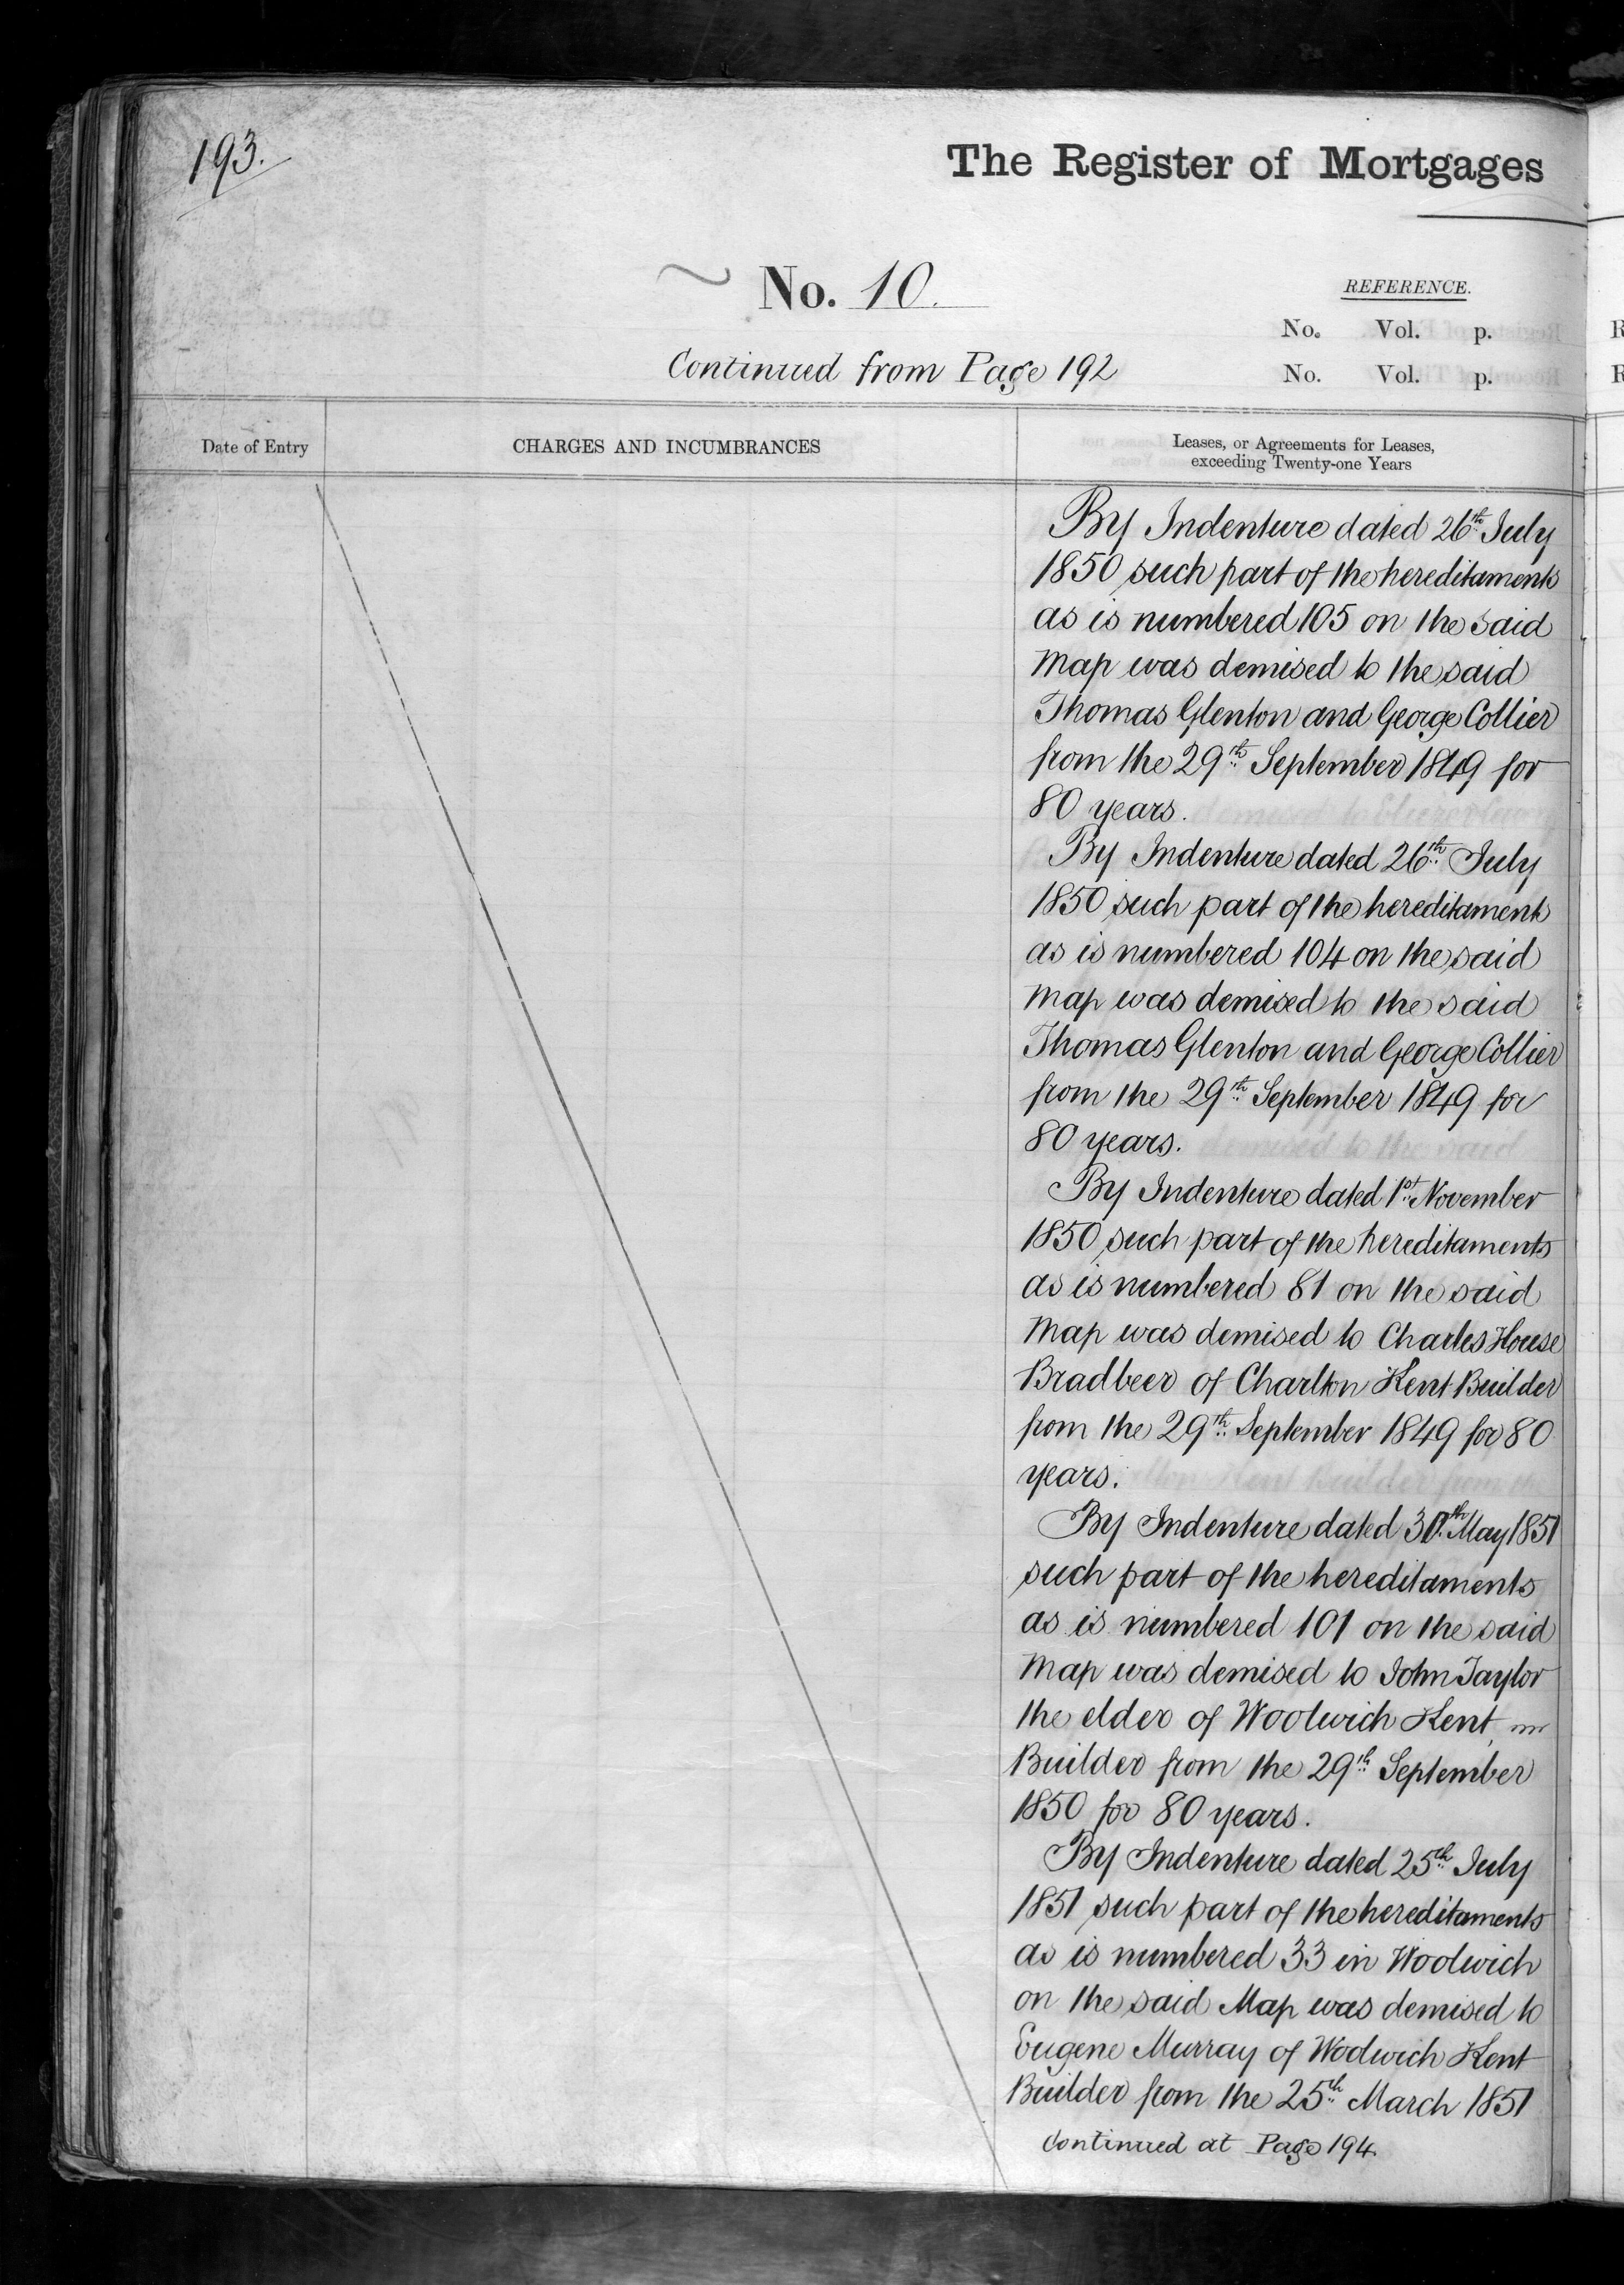 193.
The Register of Mortgages
No. 10.
REFERENCE.
No. Vol. p.
No. Vol. p.
Continued from Page 192
Date of Entry
CHARGES AND INCUMBRANCES
Leases, or Agreements for Leases,
exceeding Twenty-one Years
By Indenture dated 26th July
1850 such part of the hereditaments
as is numbered 105 on the said
Map was demised to the said
Thomas Glenton and George Collier
from the 29th September 1849 for
80 years.
By Indenture dated 26th July
1850 such part of the hereditaments
as is numbered 104 on the said
Map was demised to the said
Thomas Glenton and George Collier
from the 29th September 1849 for
80 years.
By Indenture dated 1st November
1850 such part of the hereditaments
as is numbered 81 on the said
Map was demised to Charles House
Bradbeer of Charlton Kent Builder
from the 29th September 1849 for 80
years.
By Indenture dated 30th May 1851
such part of the hereditaments
as is numbered 101 on the said
Map was demised to John Taylor
the elder of Woolwich Kent
Builder from the 29th September
1850 for 80 years.
By Indenture dated 25th July
1851 such part of the hereditaments
as is numbered 33 in Woolwich
on the said Map was demised to
Eugene Murray of Woolwich Kent
Builder from the 25th March 1851
Continued at Page 194.